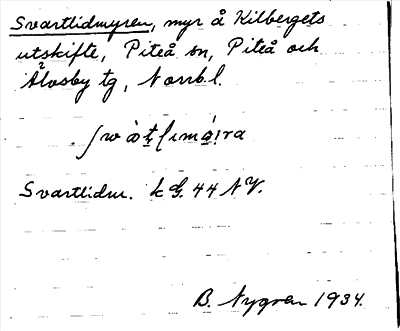 Svartlidmyren, myr å Kilbergets
utskifte, Piteå sn, Piteå och
Älvsby tg, Norrb. l.
Svartlidm. k G. 44 N V.
B. Nygren 1934.